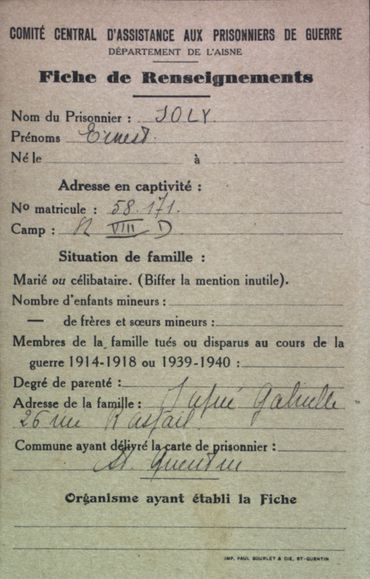 COMITÉ CENTRAL D'ASSISTANCE AUX PRISONNIERS DE GUERRE
DÉPARTEMENT DE L'AISNE
Fiche de Renseignements
Nom du Prisonnier : JOLY
Prénoms Ernest
Né le à
Adresse en captivité :
No matricule : 58.171.
Camp : VIII D
Situation de famille :
Marié ou célibataire. (Biffer la mention inutile).
Nombre d'enfants mineurs :
— de frères et sœurs mineurs :
Membres de la famille tués ou disparus au cours de la
guerre 1914-1918 ou 1939-1940 :
Degré de parenté :
Adresse de la famille :
26 rue Raspail
Commune ayant délivré la carte de prisonnier :
St Quentin
Organisme ayant établi la Fiche
IMP. PAUL BOURLET & CIE, ST-QUENTIN